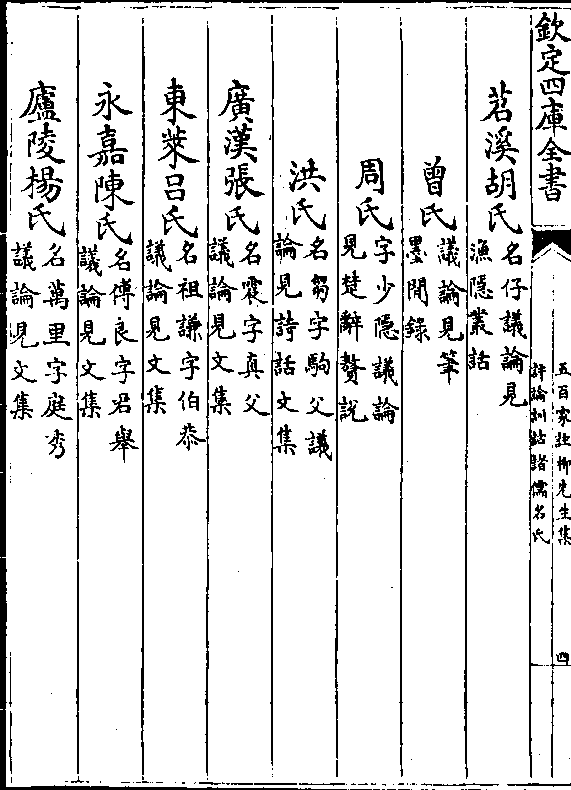 欽定四庫全書
五百家註柳先生集
評論訓詁諸儒名氏
四
苕溪胡氏
名仔議論見
漁隱叢話
曾氏
議論見筆
墨間錄
周氏
字少隱議論
見楚辭贅說
洪氏
名芻字駒父議
論見詩話文集
廣漢張氏
名震字真父
議論見文集
東萊呂氏
名祖謙字伯恭
議論見文集
永嘉陳氏
名傅良字君舉
議論見文集
廬陵楊氏
名萬里字庭秀
議論見文集